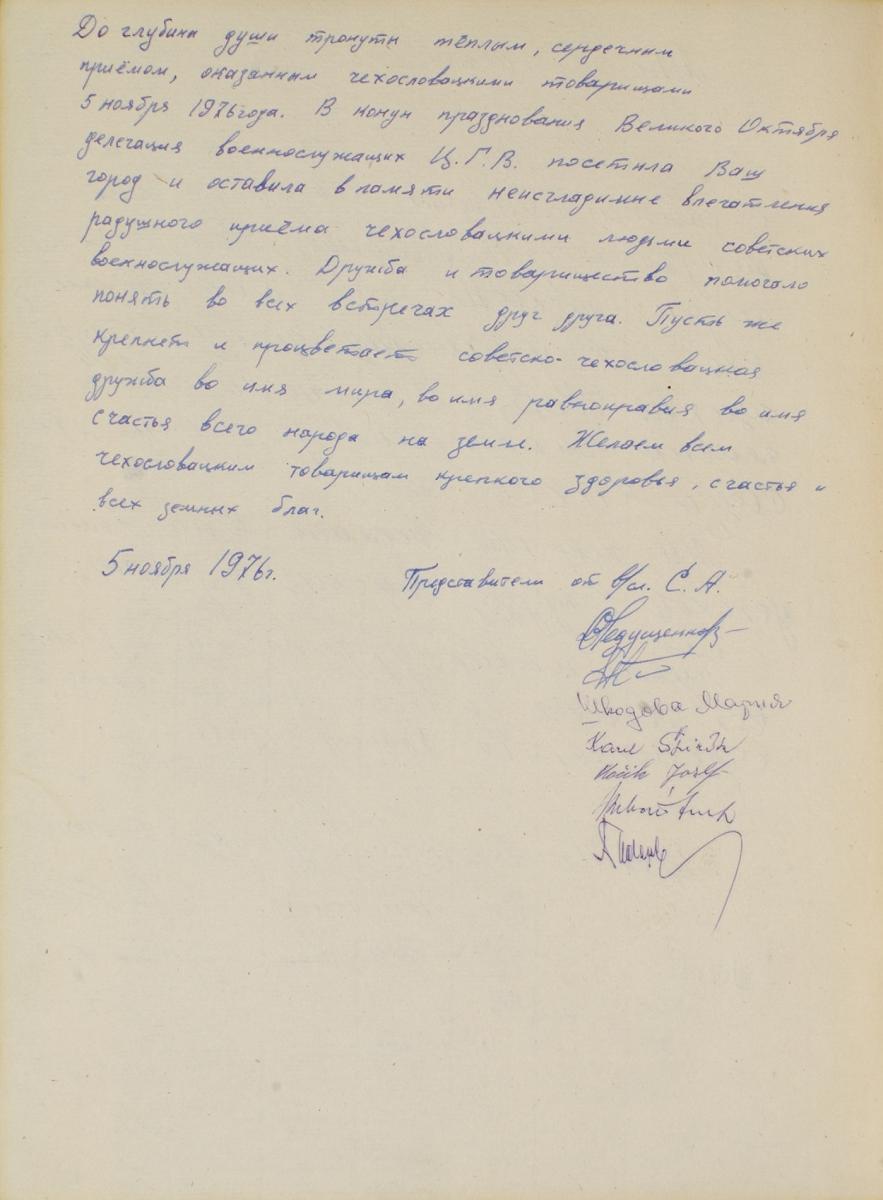 До глубины души тронуты тёплым, сердечным
приёмом, оказанным чехословацкими товарищами
5 ноября 1976 года. В конун празднования Великого Октября
делегация военнослужащих Ц.Г.В. посетила Ваш
город и оставила в памяти неизгладимые впечатления
радушного приёма чехословацкими людьми советских
военнослужащих. Дружба и товарищество помогало
понять во всех встречах друг друга. Пусть же
крепнет и процветает советско-чехословацкая
дружба во имя мира, во имя равноправия во имя
счастья всего народа на земле. Желаем всем
чехословацким товарищам крепкого здоровья, счастья и
всех земных благ.
5 ноября 1976г.
Представители от в/сл. С. А.
Шкодова Мария
Karel
Josef